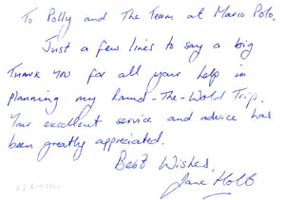 To Polly and The Team at Marco Polo.
Just a few lines to say a big
Thank You for all your help in
planning my Round-The-World Trip.
Your excellent service and advice has
been greatly appreciated.
Best Wishes,
Jane Holb